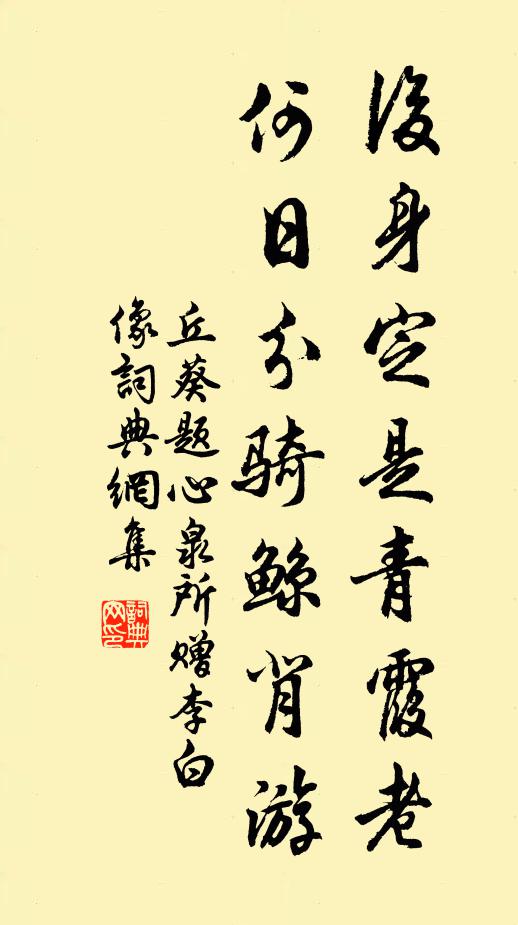 後身定是青霞老
何日分騎鯨背游
丘葵題心泉所贈李白
像詞典網集
詞典网印